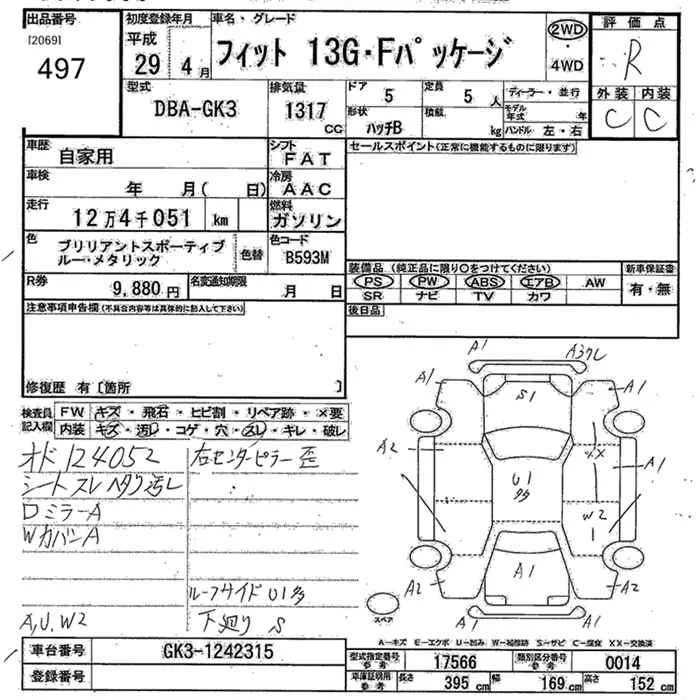 出品番号
[2069]
497
初度登録年月
平成
29 4月
車名・グレード
フィット 13G・Fパッケージ
2WD
・
4WD
評価点
R
外装 内装
C C
型式
DBA-GK3
排気量
1317
CC
ドア
5
定員
5 人
形状
ハッチB
積載
kg
ディーラー・並行
モデル年式 年
ハンドル 左・右
車歴
自家用
シフト
FAT
セールスポイント(正常に機能するものに限ります)
車検
年 月( 日)
冷房
AAC
走行
12万4千051 km
燃料
ガソリン
色
ブリリアントスポーティブ
ルー・メタリック
色替
色コード
B593M
装備品(純正品に限り○をつけてください)
新車保証書
PS PW ABS エアB AW
SR ナビ TV カワ
有・無
R券
9,880円
名変通知期限
月 日
後日品
注意事項申告欄(不具合内容等は具体的に記入して下さい)
修復歴 有〔箇所 〕
検査員
記入欄
FW キズ・飛石・ヒビ割・リペア跡・×要
内装 キズ・汚レ・コゲ・穴・スレ・キレ・破レ
オド 124052
シートスレ ヘタリ汚レ
DミラーA
WカバンA
A,U,W2
右センターピラー歪
ルーフサイド U1多
下廻り S
A1
A3クレ
A1
S1
A1
A2
XX
A1
U1
多
W2
1
A2
A1
A2
スペア
A-キズ E-エクボ U-凹み W-補修跡 S-サビ C-腐食 XX-交換済
車台番号
GK3-1242315
登録番号
型式指定番号
参考
17566
類別区分番号
参考
0014
車庫証明用
参考
長さ
395 cm
幅
169 cm
高さ
152 cm